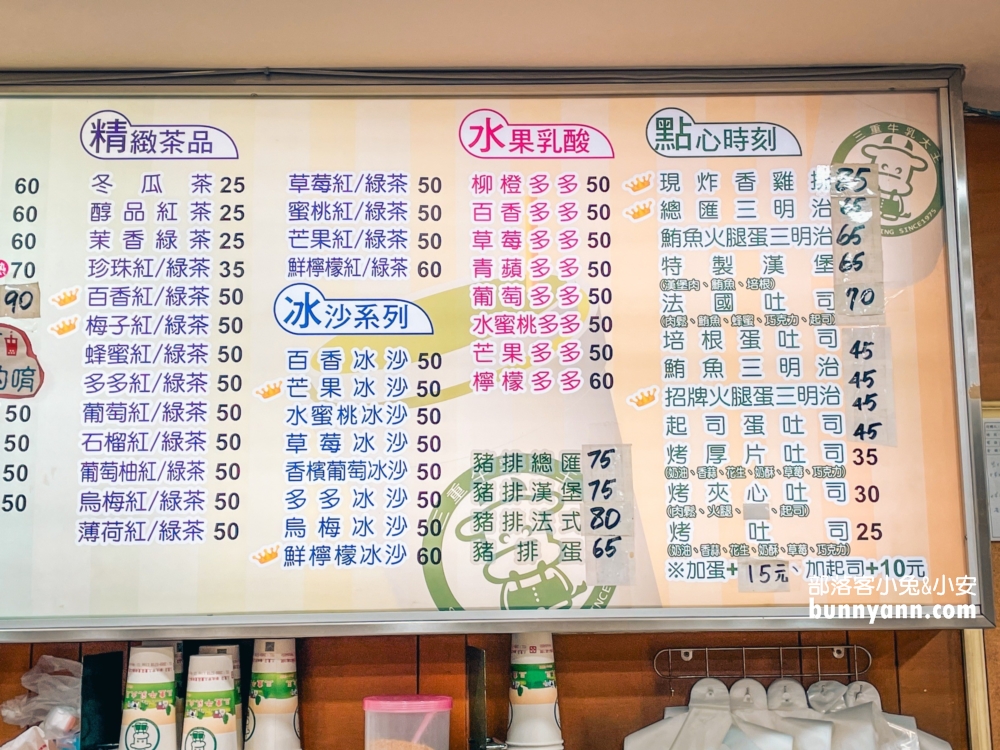 60
60
60
70
90
的唷
50
50
50
50
精緻茶品
冬瓜茶 25
醇品紅茶 25
茉香綠茶 25
珍珠紅/綠茶 35
百香紅/綠茶 50
梅子紅/綠茶 50
蜂蜜紅/綠茶 50
多多紅/綠茶 50
葡萄紅/綠茶 50
石榴紅/綠茶 50
葡萄柚紅/綠茶 50
烏梅紅/綠茶 50
薄荷紅/綠茶 50
草莓紅/綠茶 50
蜜桃紅/綠茶 50
芒果紅/綠茶 50
鮮檸檬紅/綠茶 60
冰沙系列
百香冰沙 50
芒果冰沙 50
水蜜桃冰沙 50
草莓冰沙 50
香檳葡萄冰沙 50
多多冰沙 50
烏梅冰沙 50
鮮檸檬冰沙 60
水果乳酸
柳橙多多 50
百香多多 50
草莓多多 50
青蘋多多 50
葡萄多多 50
水蜜桃多多 50
芒果多多 50
檸檬多多 60
豬排總匯 75
豬排漢堡 75
豬排法式 80
豬排蛋 65
點心時刻
現炸香雞排 85
總匯三明治 65
鮪魚火腿蛋三明治 65
特製漢堡 65
(漢堡肉、鮪魚、培根)
法國吐司 70
(肉鬆、鮪魚、蜂蜜、巧克力、起司)
培根蛋吐司 45
鮪魚三明治 45
招牌火腿蛋三明治 45
起司蛋吐司 45
烤厚片吐司 35
(奶油、香蒜、花生、奶酥、草莓、巧克力)
烤夾心吐司 30
(肉鬆、火腿、起司)
烤吐司 25
(奶油、香蒜、花生、奶酥、草莓、巧克力)
※加蛋+15元、加起司+10元
三重牛乳大王
SINCE1975
三重
部落客小兔&小安
bunnyann.com